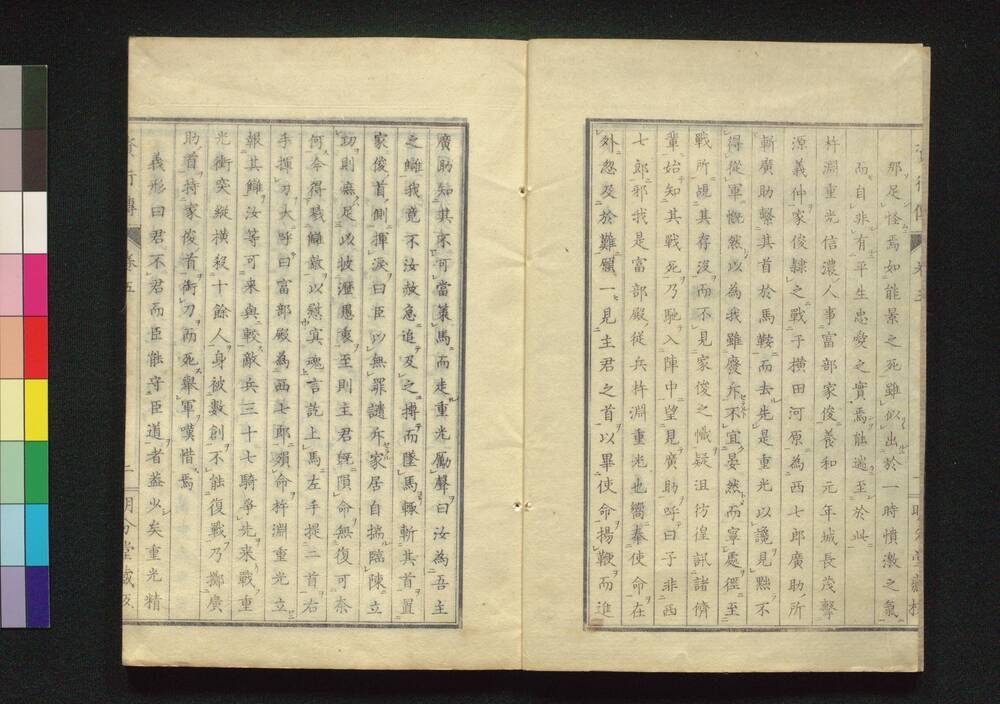 那足怪焉如能景之死雖似出於一時憤激之氣
而自非有平生忠愛之實焉能逃至於此
杵淵重光信濃人事富部家俊養和元年城長茂擊
源義仲家俊隸之戰于横田河原為西七郎廣助所
斬廣助繫其首於馬鞍而去先是重光以讒見黜不
得從軍慨然以為我雖廢斥不宜晏然而寧處徑至
戰所覘其存沒而不見家俊之幟疑沮彷徨訊諸儕
輩始知其戰死乃馳入陣中望見廣助呼曰子非西
七郎邪我是富部殿從兵杵淵重光也嚮奉使命在
外忽及於難願一見主君之首以畢使命揚鞭而進
廣助知其不可當策馬而走重光勵聲曰汝為吾主
之讎我竟不汝赦急追及之搏而墜馬輙斬其首置
家俊首側揮淚曰臣以無罪譴斥家居自搞臨陳立
功則庶足以披瀝愚衷至則主君既隕命無復可奈
何今得戮讎敵以慰冥魂言訖上馬左手提二首右
手揮刀大呼曰富部殿為西七郎殞命杵淵重光立
報其讎汝等可来與較敵兵三十七騎爭先来戰重
光衝突縱横殺十餘人身被數創不能復戰乃擲廣
助首持家俊首銜刀而死舉軍嘆惜焉
義形曰君不君而臣能守臣道者蓋少矣重光精